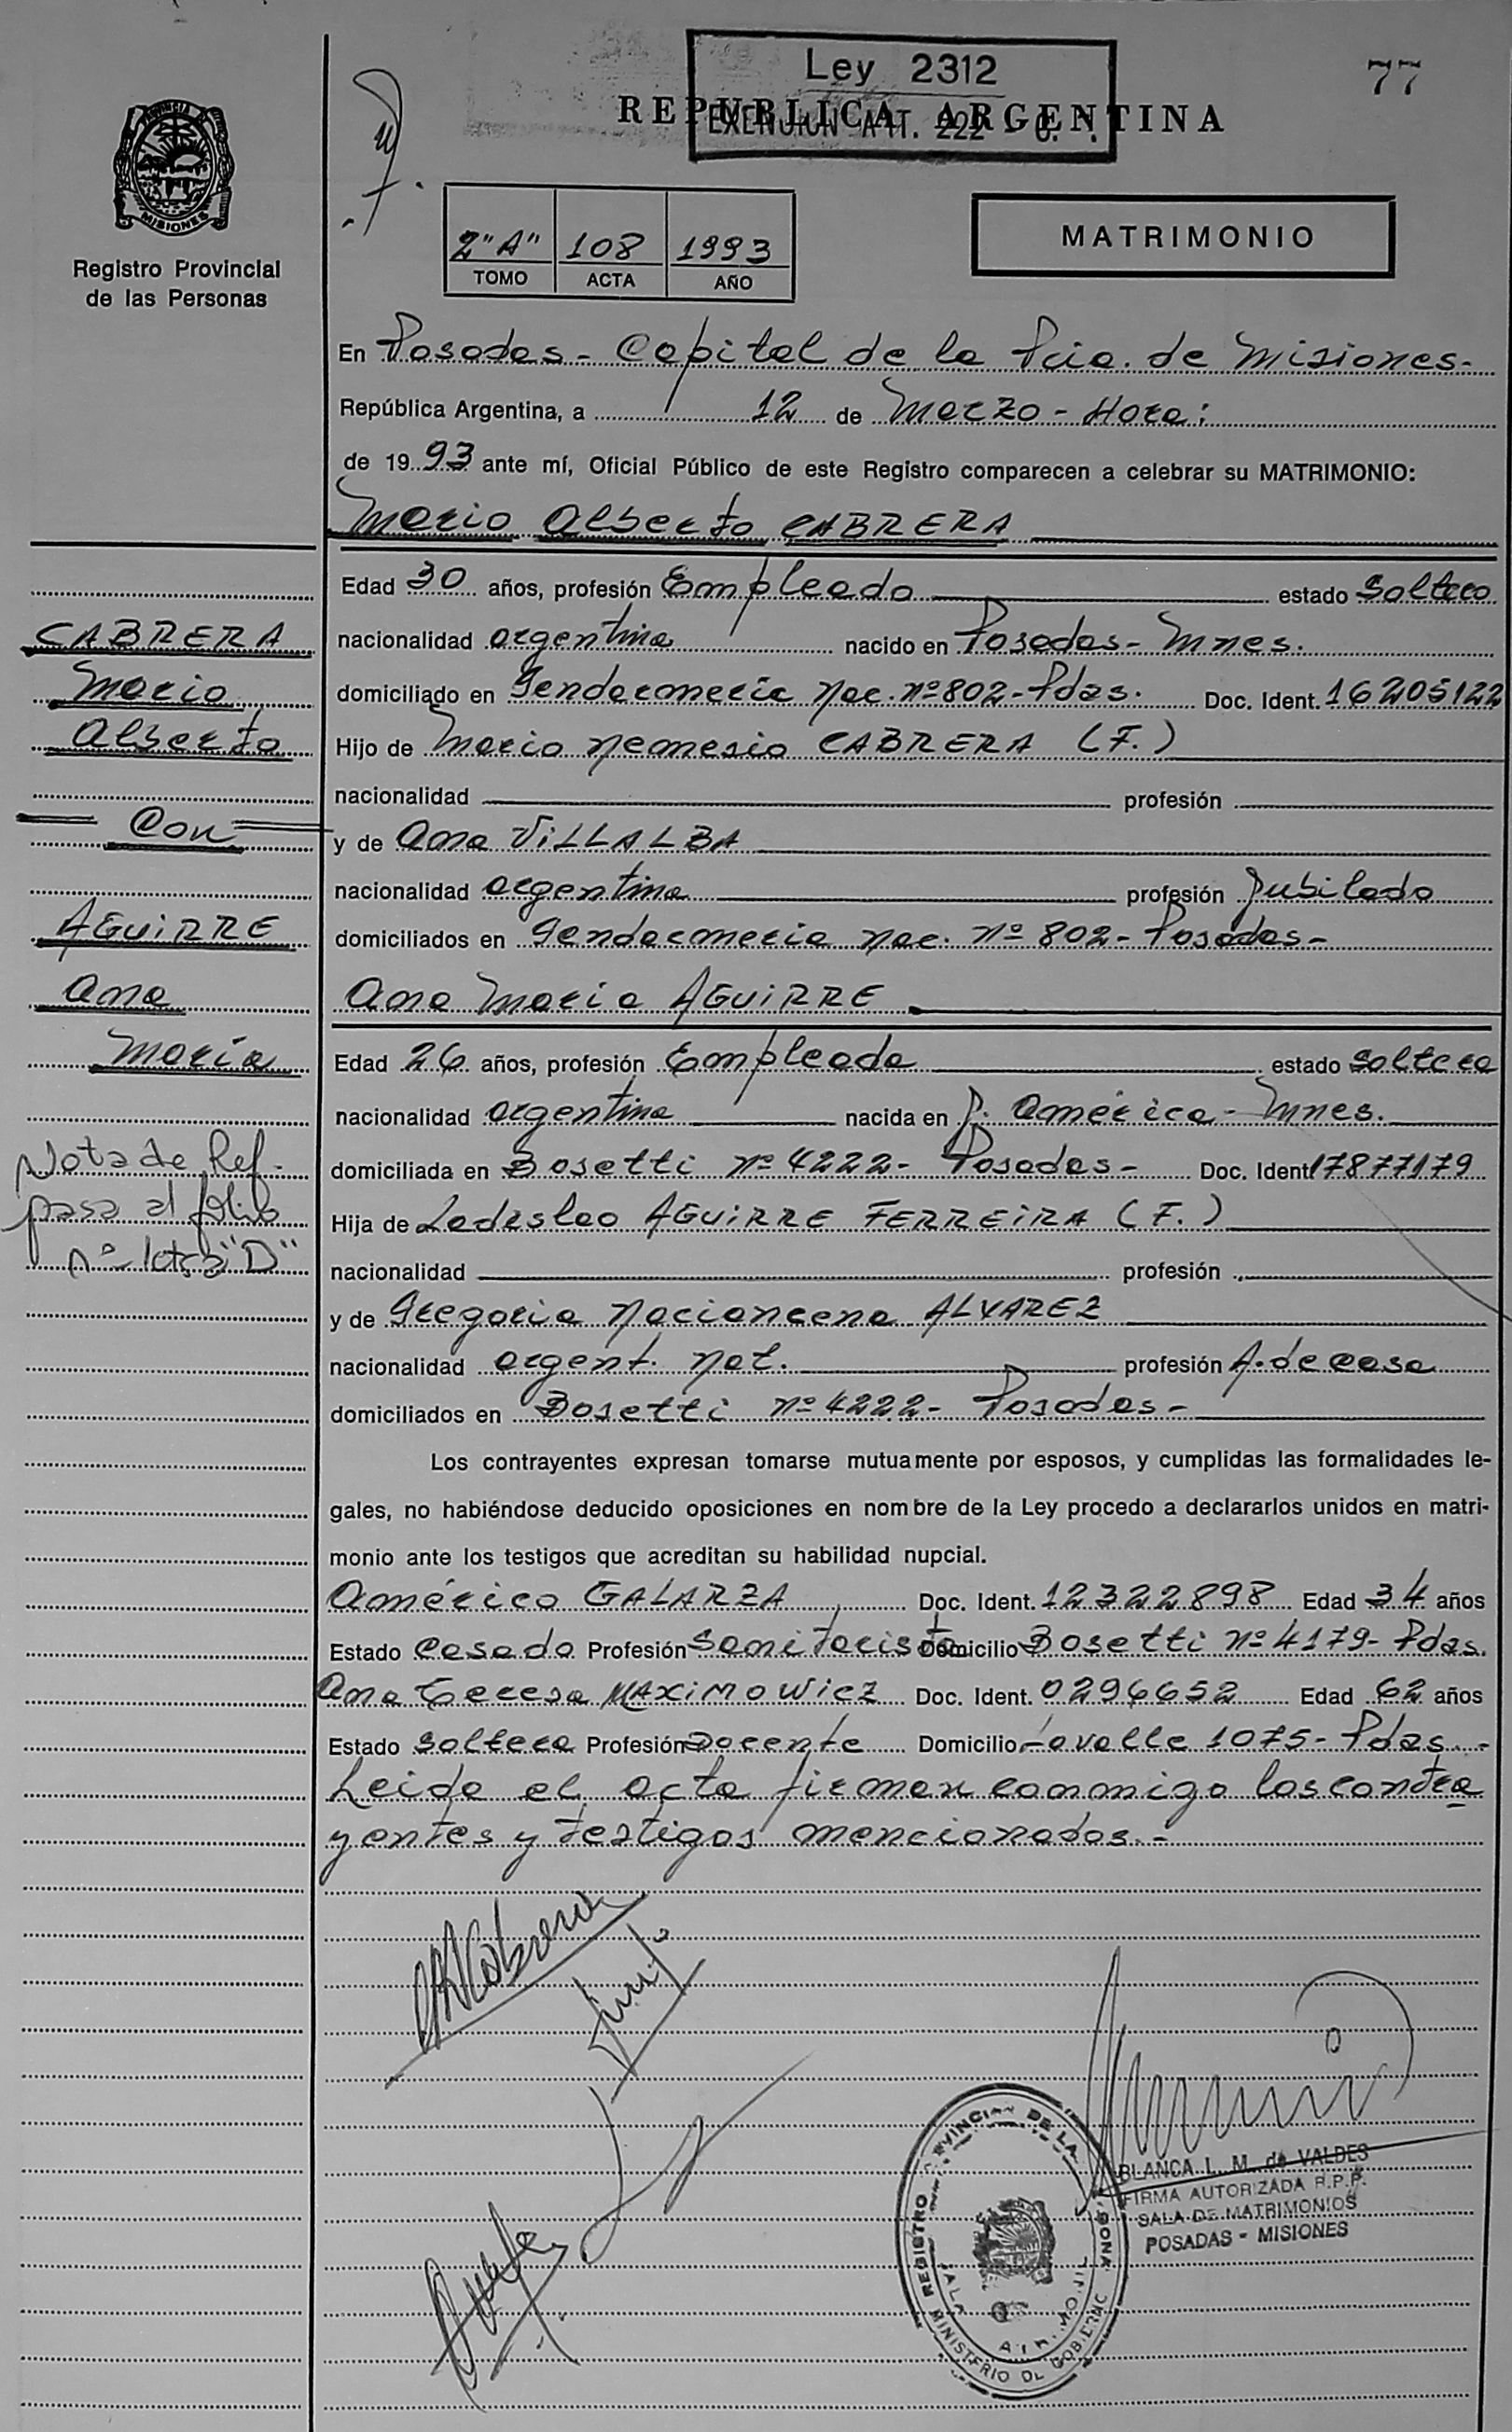 Ley 2312
77
REPUBLICA ARGENTINA
EXENCION ART. 222
PROVINCIA DE
MISIONES
Registro Provincial
de las Personas
2"A" 108 1993
TOMO ACTA AÑO
MATRIMONIO
En Posadas - Capital de la Pcia. de Misiones.-
República Argentina, a 12 de Marzo - Hora:
de 1993 ante mí, Oficial Público de este Registro comparecen a celebrar su MATRIMONIO:
Mario Alberto CABRERA
Edad 30 años, profesión Empleado estado Soltero
nacionalidad argentina nacido en Posadas - Mnes.
domiciliado en Gendarmería Nac. nº 802 - Pdas. Doc. Ident. 16205122
Hijo de Mario Nemesio CABRERA (F.)
nacionalidad profesión
y de Ana ViLLALBA
nacionalidad argentina profesión Jubilada
domiciliados en Gendarmería Nac. nº 802 - Posadas -
Ana María AGUiRRE
Edad 26 años, profesión Empleada estado Soltera
nacionalidad argentina nacida en P. América - Mnes.
domiciliada en Bosetti nº 4222 - Posadas - Doc. Ident. 17877179
Hija de Ladislao AGUiRRE FERREiRA (F.)
nacionalidad profesión
y de Gregoria Naciancena ALVAREZ
nacionalidad argent. nat. profesión A. de casa
domiciliados en Bosetti nº 4222 - Posadas -
Los contrayentes expresan tomarse mutuamente por esposos, y cumplidas las formalidades le-
gales, no habiéndose deducido oposiciones en nombre de la Ley procedo a declararlos unidos en matri-
monio ante los testigos que acreditan su habilidad nupcial.
Américo GALARZA Doc. Ident. 12322898 Edad 34 años
Estado Casado Profesión Sanitarista Domicilio Bosetti nº 4179 - Pdas.
Ana Teresa MAXiMOWicz Doc. Ident. 0296652 Edad 62 años
Estado Soltera Profesión Docente Domicilio Lavalle 1075 - Pdas.-
Leida el acta firman conmigo los contra
yentes y testigos mencionados.-
CABRERA
Mario
Alberto
Con
AGUiRRE
Ana
María
Nota de Ref.
pasa al folio
nº letra "D"
MACabrera
BLANCA L. M. de VALDES
FIRMA AUTORIZADA R.P.P.
SALA DE MATRIMONIOS
POSADAS - MISIONES
REGISTRO DE LA
MINISTERIO DE